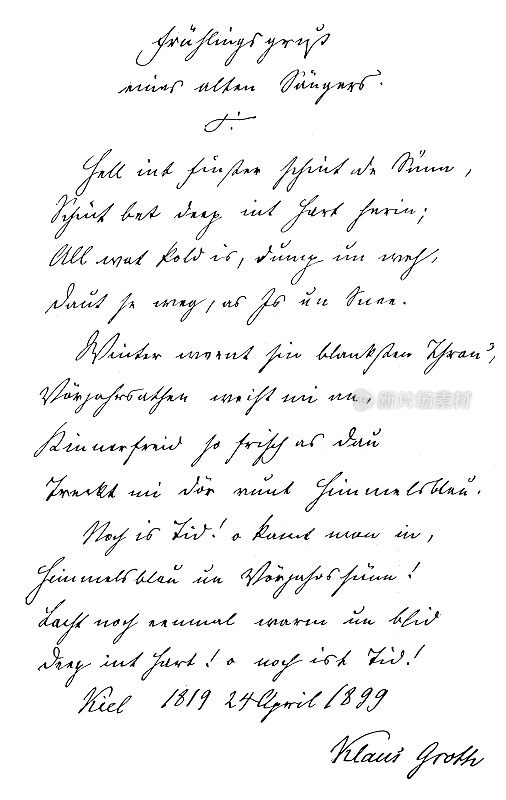 Frühlingsgruß
eines alten Sängers.
Hell int Finster schint de Sünn,
Schint bet deep int Hart herin;
All wat kold is, dump un weh,
Daut se weg, as Is un Snee.
Winter weent sin blanksten Thran,
Vörjahrsathen weiht mi an,
Kinnerfreid so frisch as Dau
Treckt mi dör vunt Himmelsblau.
Noch is Tid! o kamt man in,
Himmelsblau un Vörjahrssünn!
Lacht noch eenmal warm un blid
Deep int Hart! o noch ist Tid!
Kiel 1819 24 April 1899
Klaus Groth
新片场素材